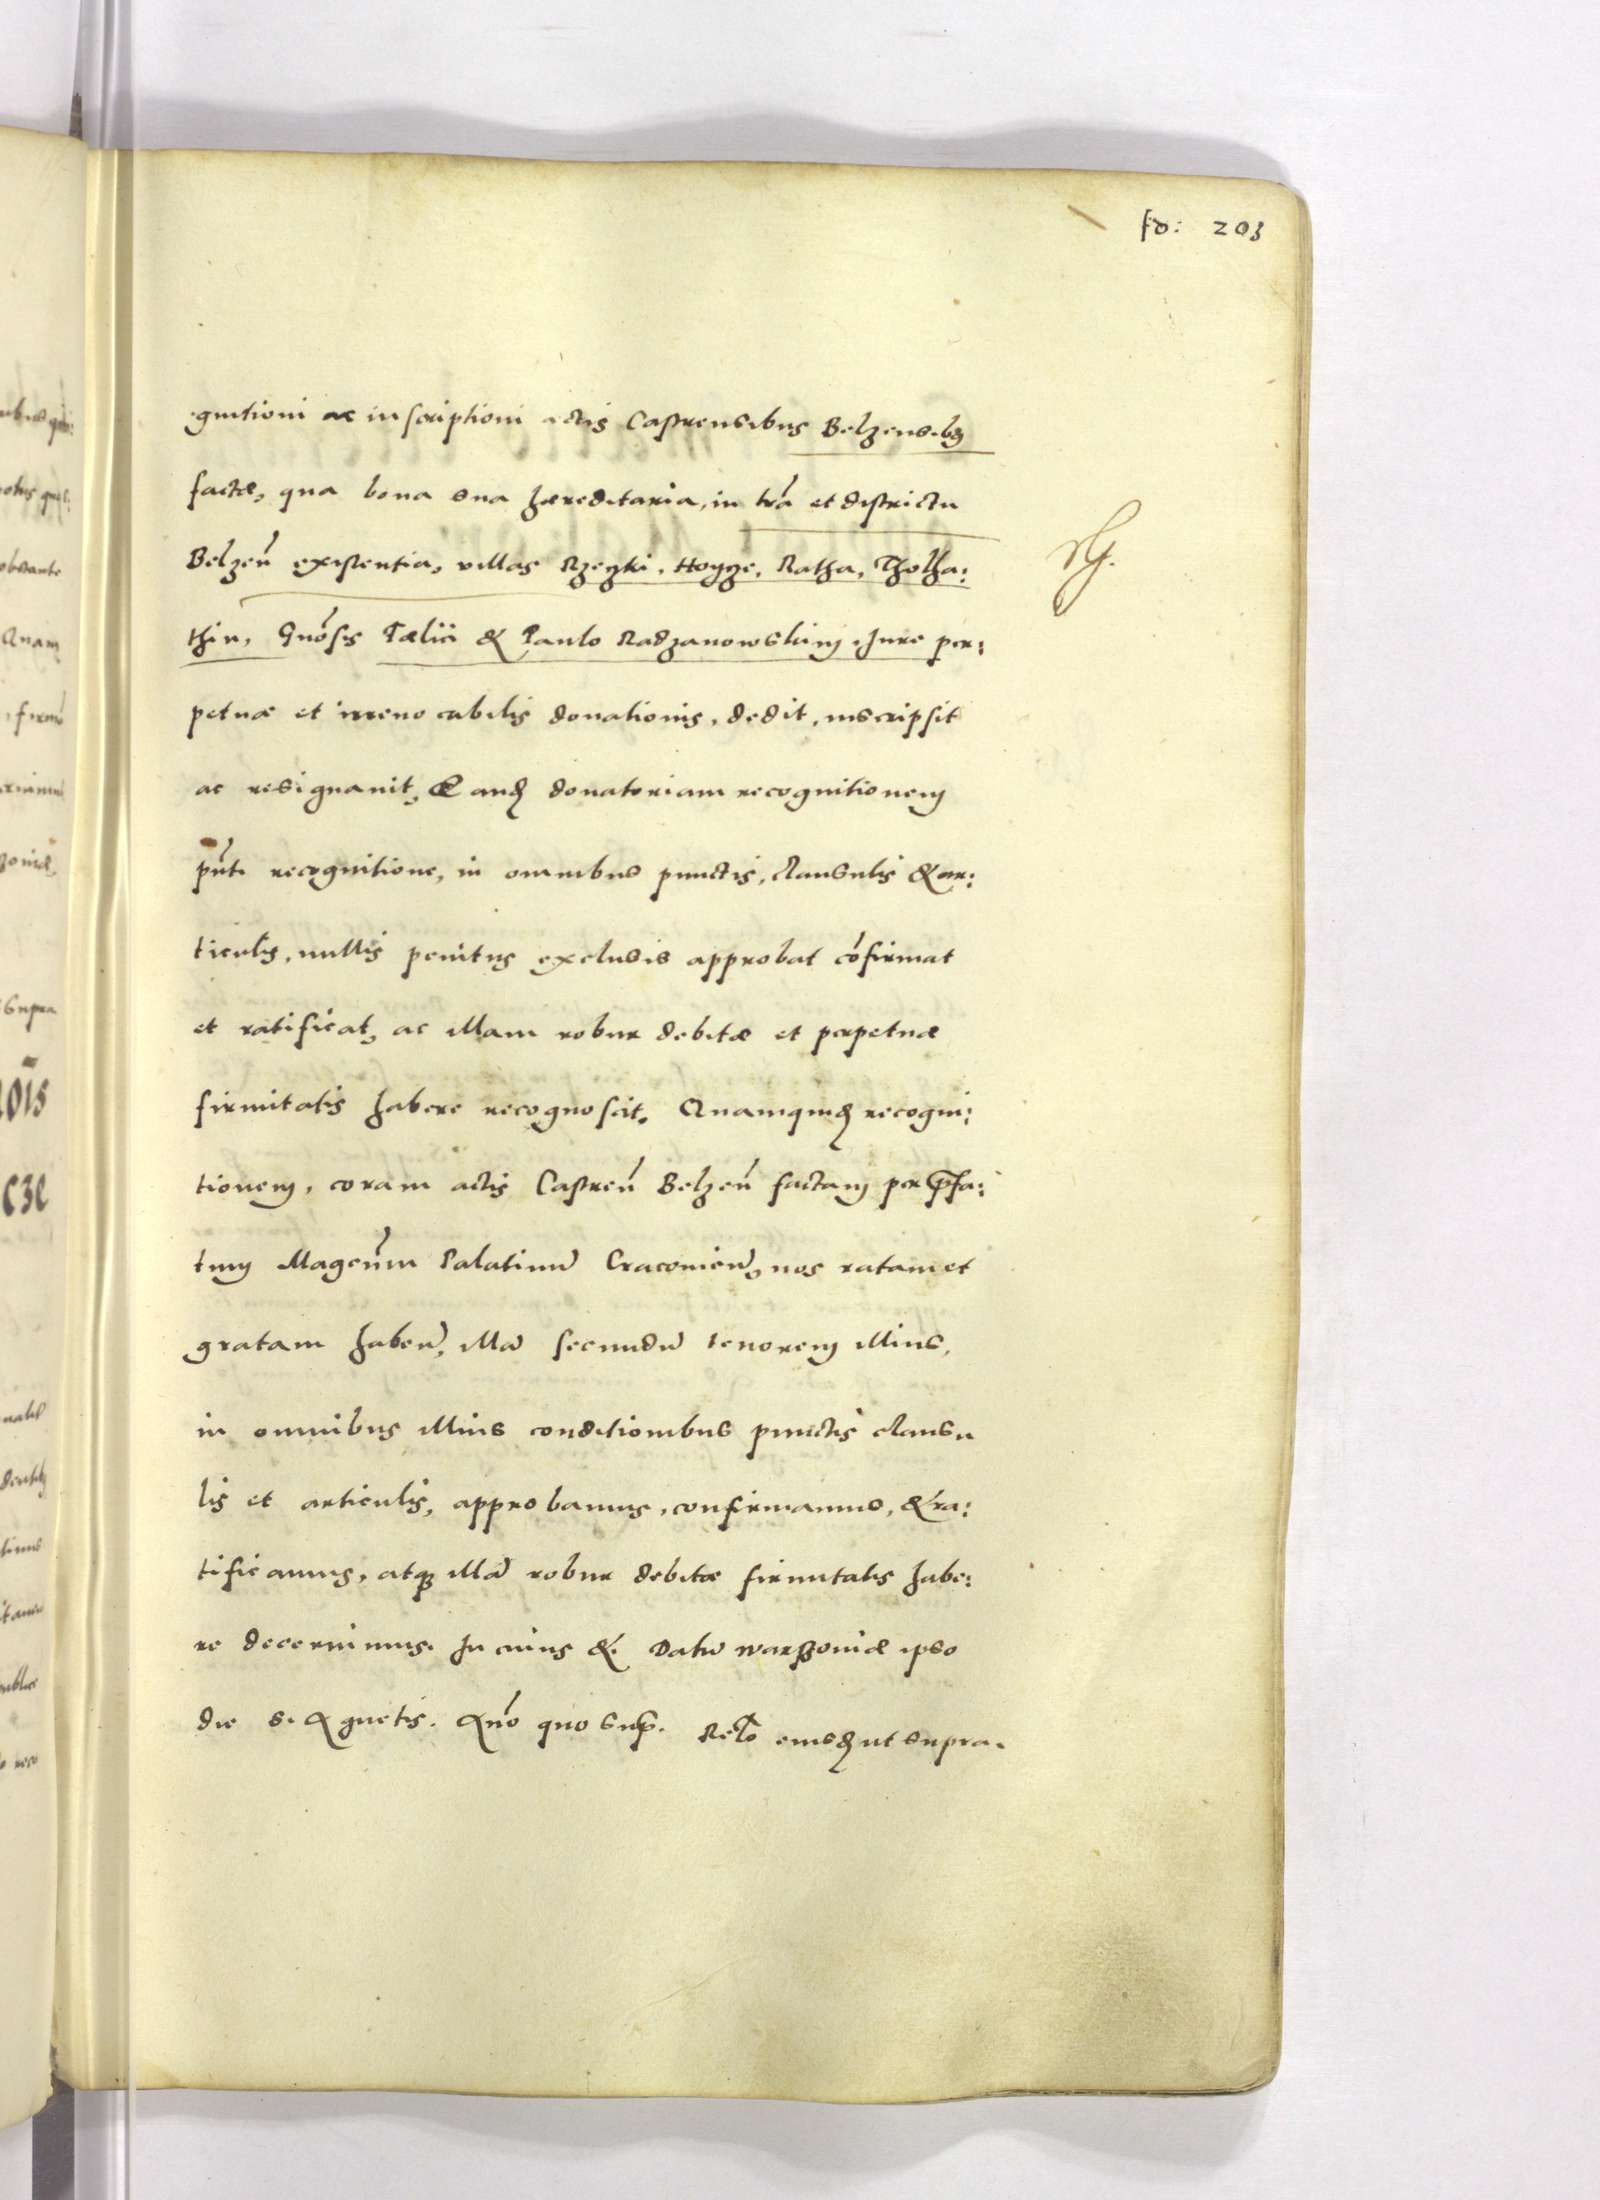 fo: 203
gnitioni ac inscriptioni actis Castrensibus Belzensibꝫ
factæ, qua bona sua hæreditaria, in tr̃a et districtu
Belzeñ existentia, villas Rzeyki, Hoyge, Ratha, Tholha:
thin, Gñosis Fælici & Paulo Radzanowskim Jure per:
petuæ et irreuocabilis donationis, dedit, inscripsit
ac resignauit, Eandꝫ donatoriam recognitionem
pñti recognitione, in omnibus punctis, clausulis & ar:
ticulis, nullis penitus exclusis approbat cõfirmat
et ratificat, ac illam robur debitæ et perpetuæ
firmitatis habere recognoscit. Quamquidꝫ recogni:
tionem, coram actis Castreñ Belzeñ factam per p̃fa:
tum Mageñm Palatinũ Cracouieñ, nos ratam et
gratam habeñ, illã secundũ tenorem illius,
in omnibus illius conditionibus punctis clausu
lis et articulis, approbamus, confirmamus, & ra:
tificamus, atqꝫ illã robur debitæ firmitatis habe:
re decernimus. In cuius &. Datũ Warssouiæ ipso
die s. Agnetis. Anño quo sup̃. Relõ eiusdꝫ ut supra.